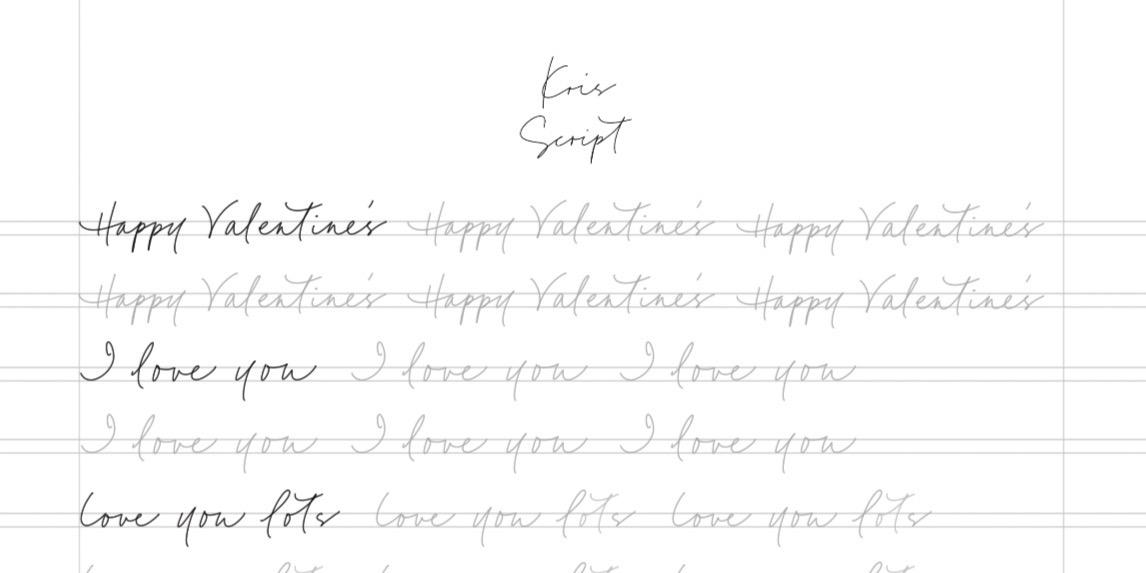 Kris
Script
Happy Valentine's Happy Valentine's Happy Valentine's
Happy Valentine's Happy Valentine's Happy Valentine's
I love you I love you I love you
I love you I love you I love you
Love you lots Love you lots Love you lots